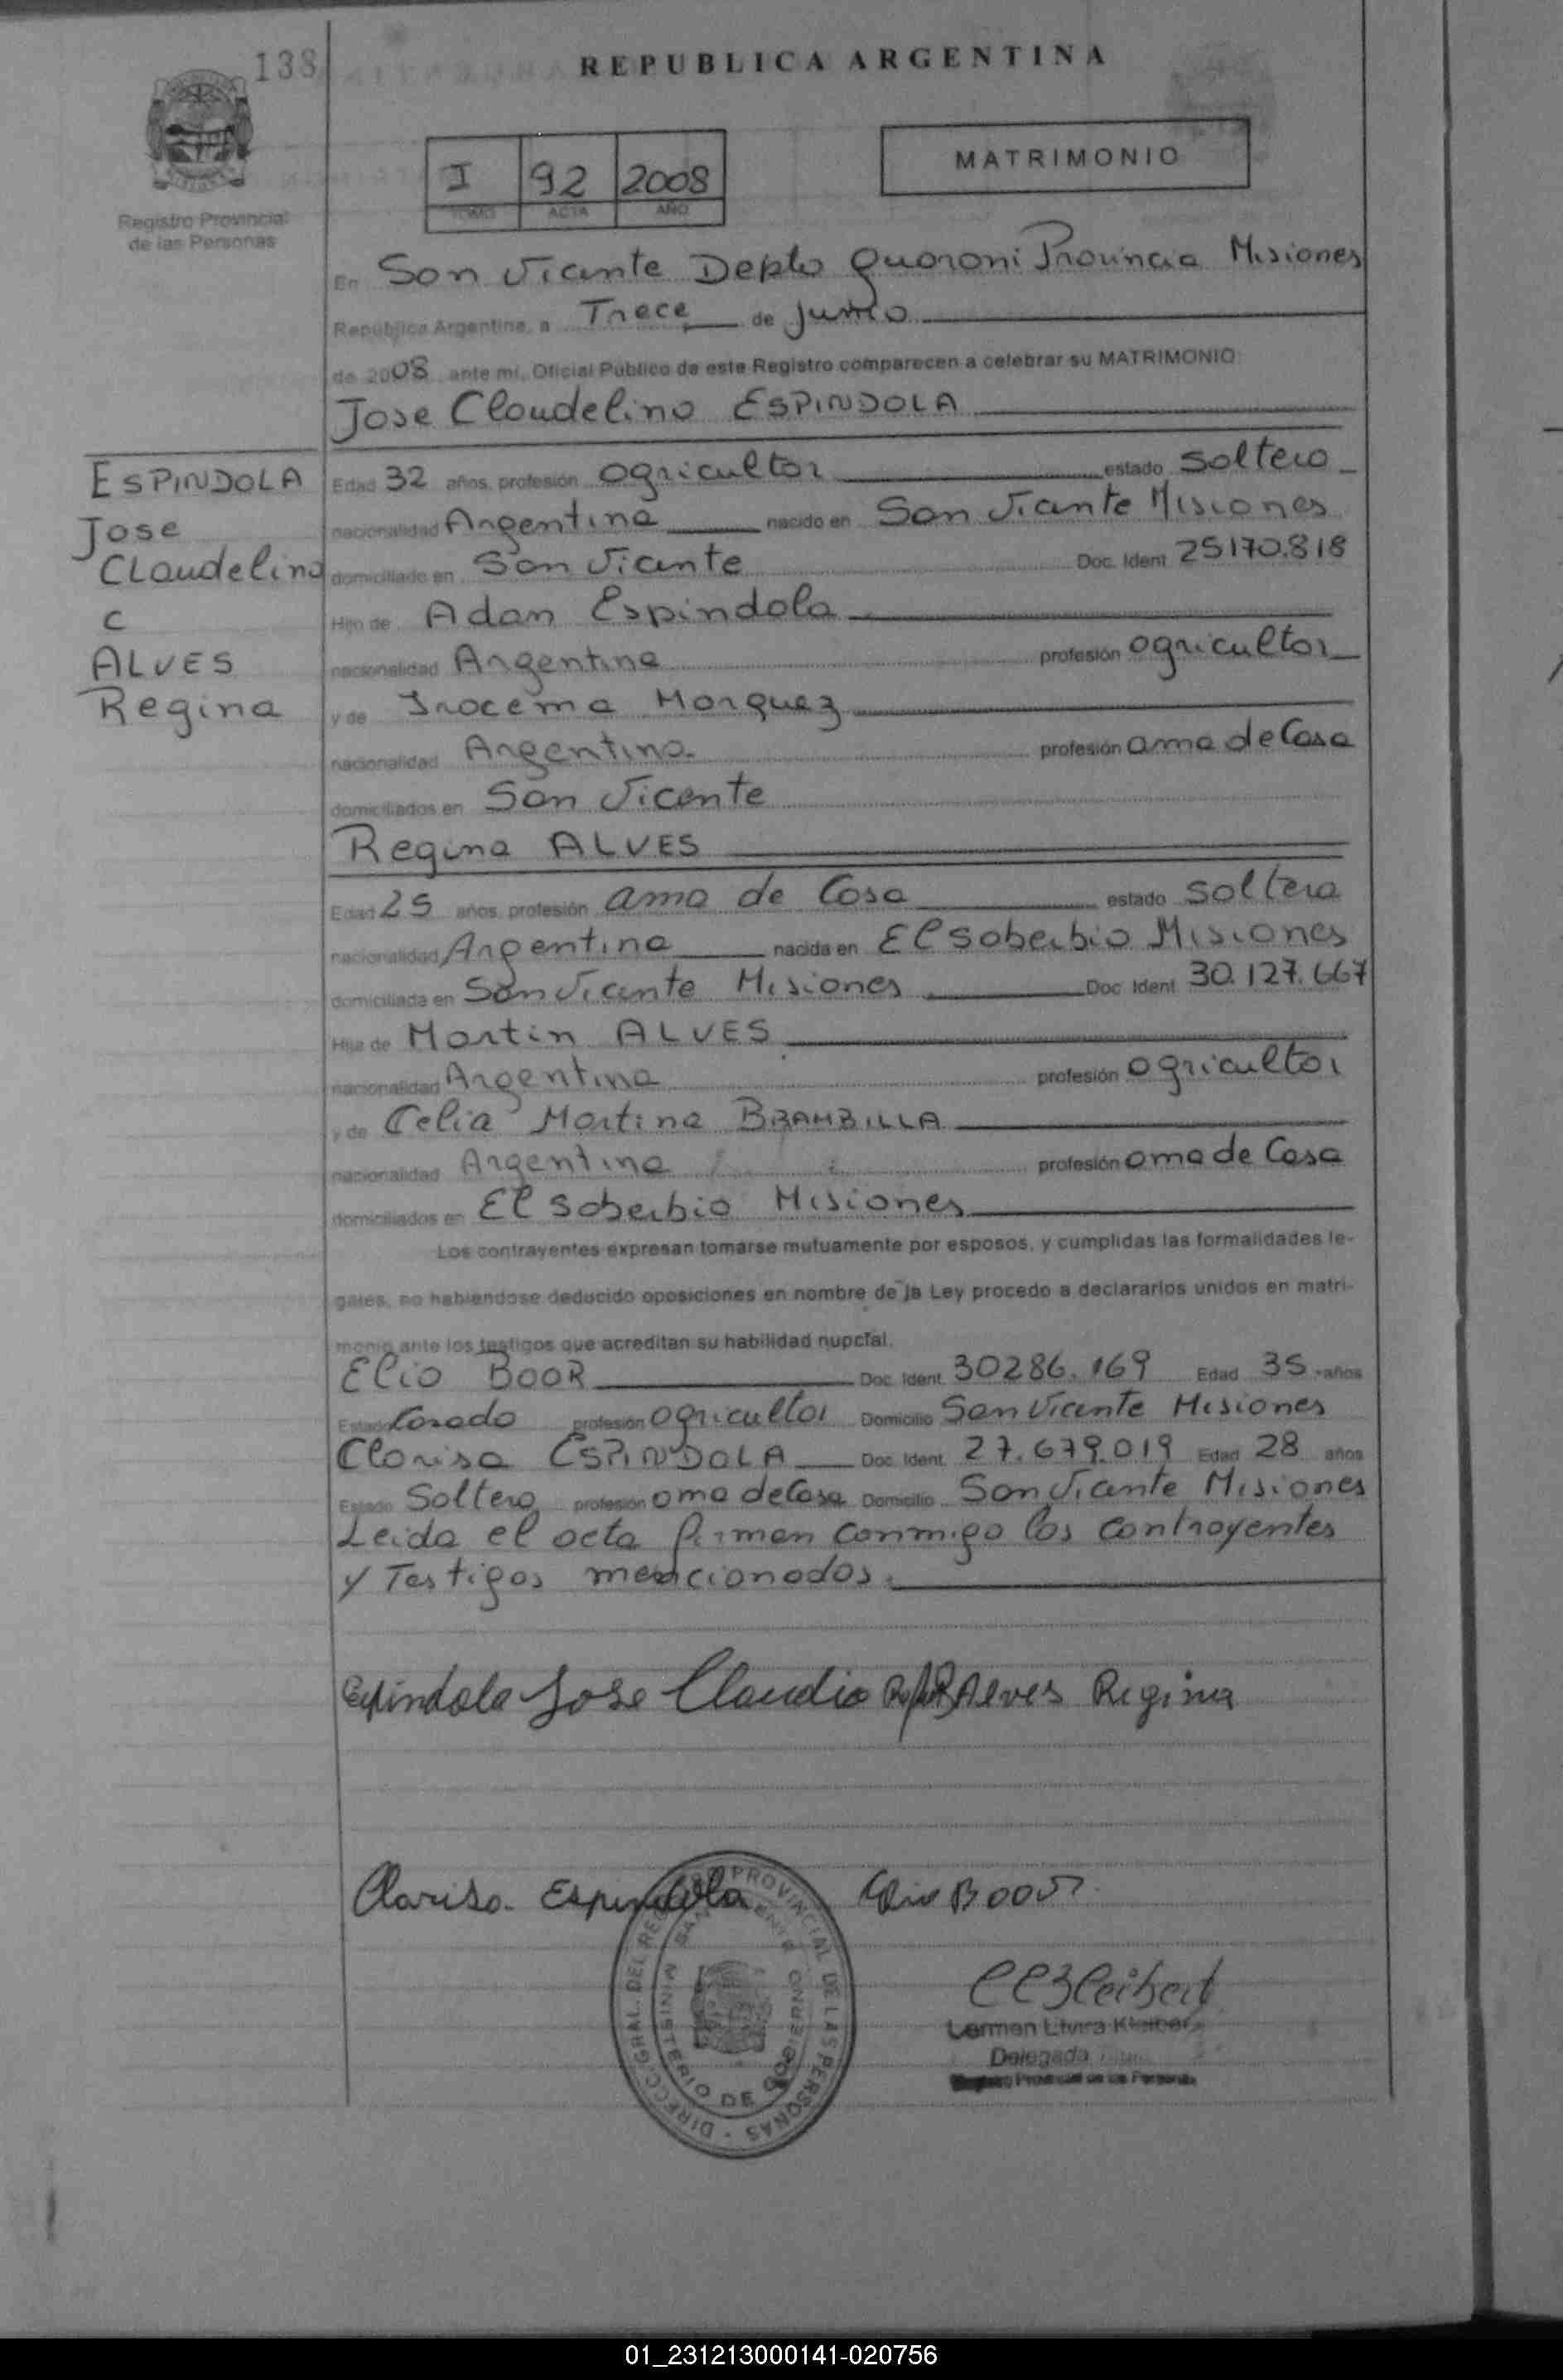 138
REPUBLICA ARGENTINA
Registro Provincial
de las Personas
I 92 2008
TOMO ACTA AÑO
MATRIMONIO
En San Vicente Depto Guarani Provincia Misiones
República Argentina, a Trece de Junio
de 2008 ante mi, Oficial Público de este Registro comparecen a celebrar su MATRIMONIO:
Jose Claudelino ESPINDOLA
ESPINDOLA
Jose
Claudelino
C
ALVES
Regina
Edad 32 años, profesión agricultor estado soltero
nacionalidad Argentina nacido en San Vicente Misiones
domiciliado en San Vicente Doc. Ident. 25170.818
Hijo de Adan Espindola
nacionalidad Argentina profesión agricultor
y de Iracema Marquez
nacionalidad Argentina profesión ama de Casa
domiciliados en San Vicente
Regina ALVES
Edad 25 años, profesión ama de Casa estado soltera
nacionalidad Argentina nacida en El soberbio Misiones
domiciliada en San Vicente Misiones Doc. Ident. 30.127.667
Hija de Martin ALVES
nacionalidad Argentina profesión agricultor
y de Celia Martina BRAMBILLA
nacionalidad Argentina profesión ama de Casa
domiciliados en El soberbio Misiones
Los contrayentes expresan tomarse mutuamente por esposos, y cumplidas las formalidades le-
gales, no habiendose deducido oposiciones en nombre de la Ley procedo a declararlos unidos en matri-
monio ante los testigos que acreditan su habilidad nupcial.
Elio BOOR Doc. Ident. 30286.169 Edad 35 años
Estado Casado profesión agricultor Domicilio San Vicente Misiones
Clarisa ESPINDOLA Doc. Ident. 27.679.019 Edad 28 años
Estado Soltera profesión ama de Casa Domicilio San Vicente Misiones
Leida el acta firman conmigo los contrayentes
y Testigos mencionados.
Espindola Jose Claudio Alves Regina
Clarisa Espindola Elio Boor
DIRECC. GRAL. DEL REG. PROVINCIAL DE LAS PERSONAS
MINISTERIO DE GOBIERNO
SAN VICENTE
Delegada
Registro Provincial de las Personas
01_231213000141-020756